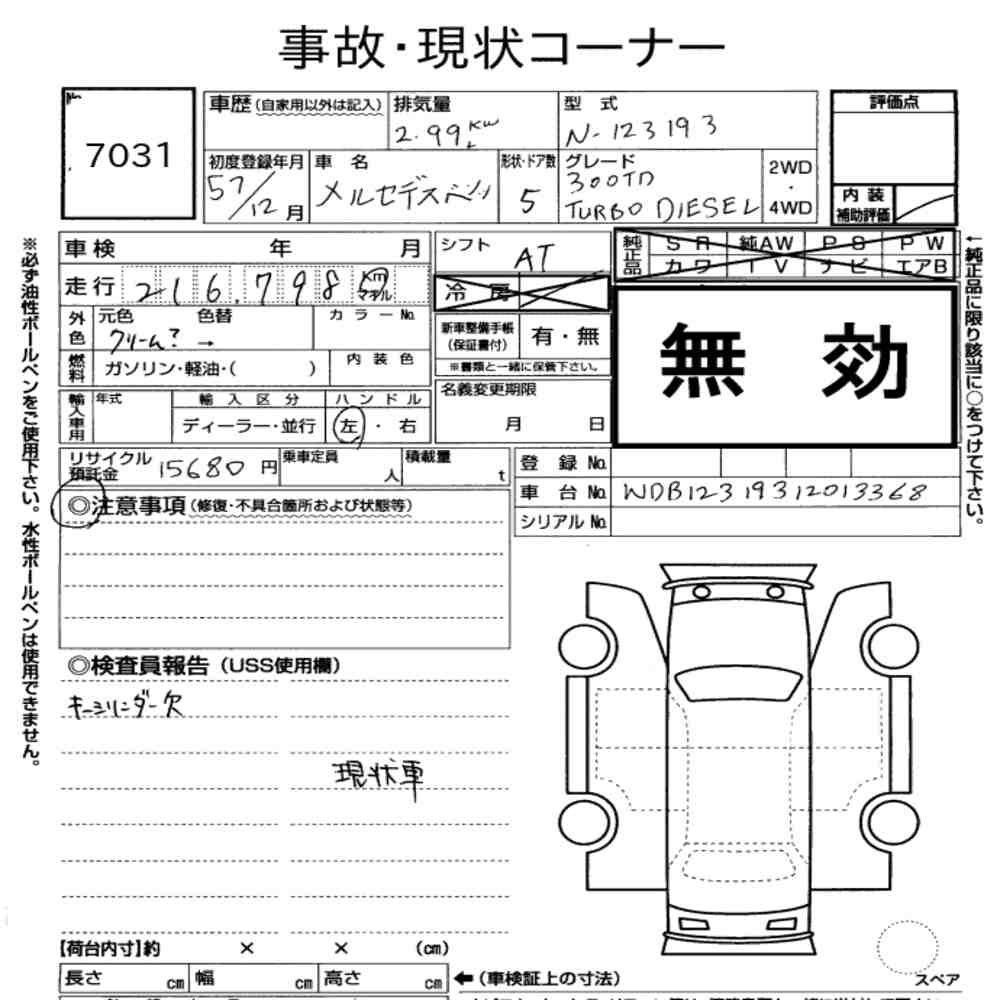 事故・現状コーナー
7031
車歴(自家用以外は記入)
排気量
2.99 KW L
型式
N-123193
評価点
初度登録年月
57/12月
車名
メルセデスベンツ
形状・ドア数
5
グレード
300TD
TURBO DIESEL
2WD
・
4WD
内装
補助評価
車検 年 月
シフト
AT
純正品
SR 純AW PS PW
カワ TV ナビ エアB
走行 216,798 Km マイル
冷房
外色
元色 色替
クリーム? →
カラーNo.
新車整備手帳
(保証書付)
有・無
※書類と一緒に保管下さい。
無効
燃料
ガソリン・軽油・( )
内装色
名義変更期限
月 日
輸入車用
年式
輸入区分
ディーラー・並行
ハンドル
左・右
リサイクル
預託金
15680円
乗車定員
人
積載量
t
登録No.
車台No. WDB12319312013368
シリアルNo.
◎注意事項(修復・不具合箇所および状態等)
◎検査員報告(USS使用欄)
キーシリンダー欠
現状車
【荷台内寸】約 × × (cm)
長さ cm 幅 cm 高さ cm
←(車検証上の寸法)
スペア
※必ず油性ボールペンをご使用下さい。水性ボールペンは使用できません。
←純正品に限り該当に○をつけて下さい。